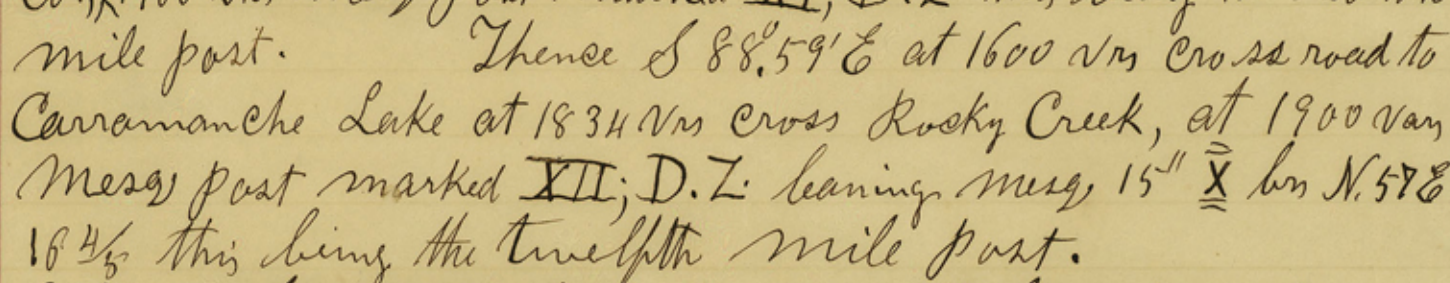 mile post. Thence S 88°59' E at 1600 vrs cross road to
Carramanche Lake at 1834 Vrs cross Rocky Creek, at 1900 vars
Mesq post marked XII; D.Z. leaning mesq 15" X brs N. 57 E
16 4/5 this being the twelfth mile post.